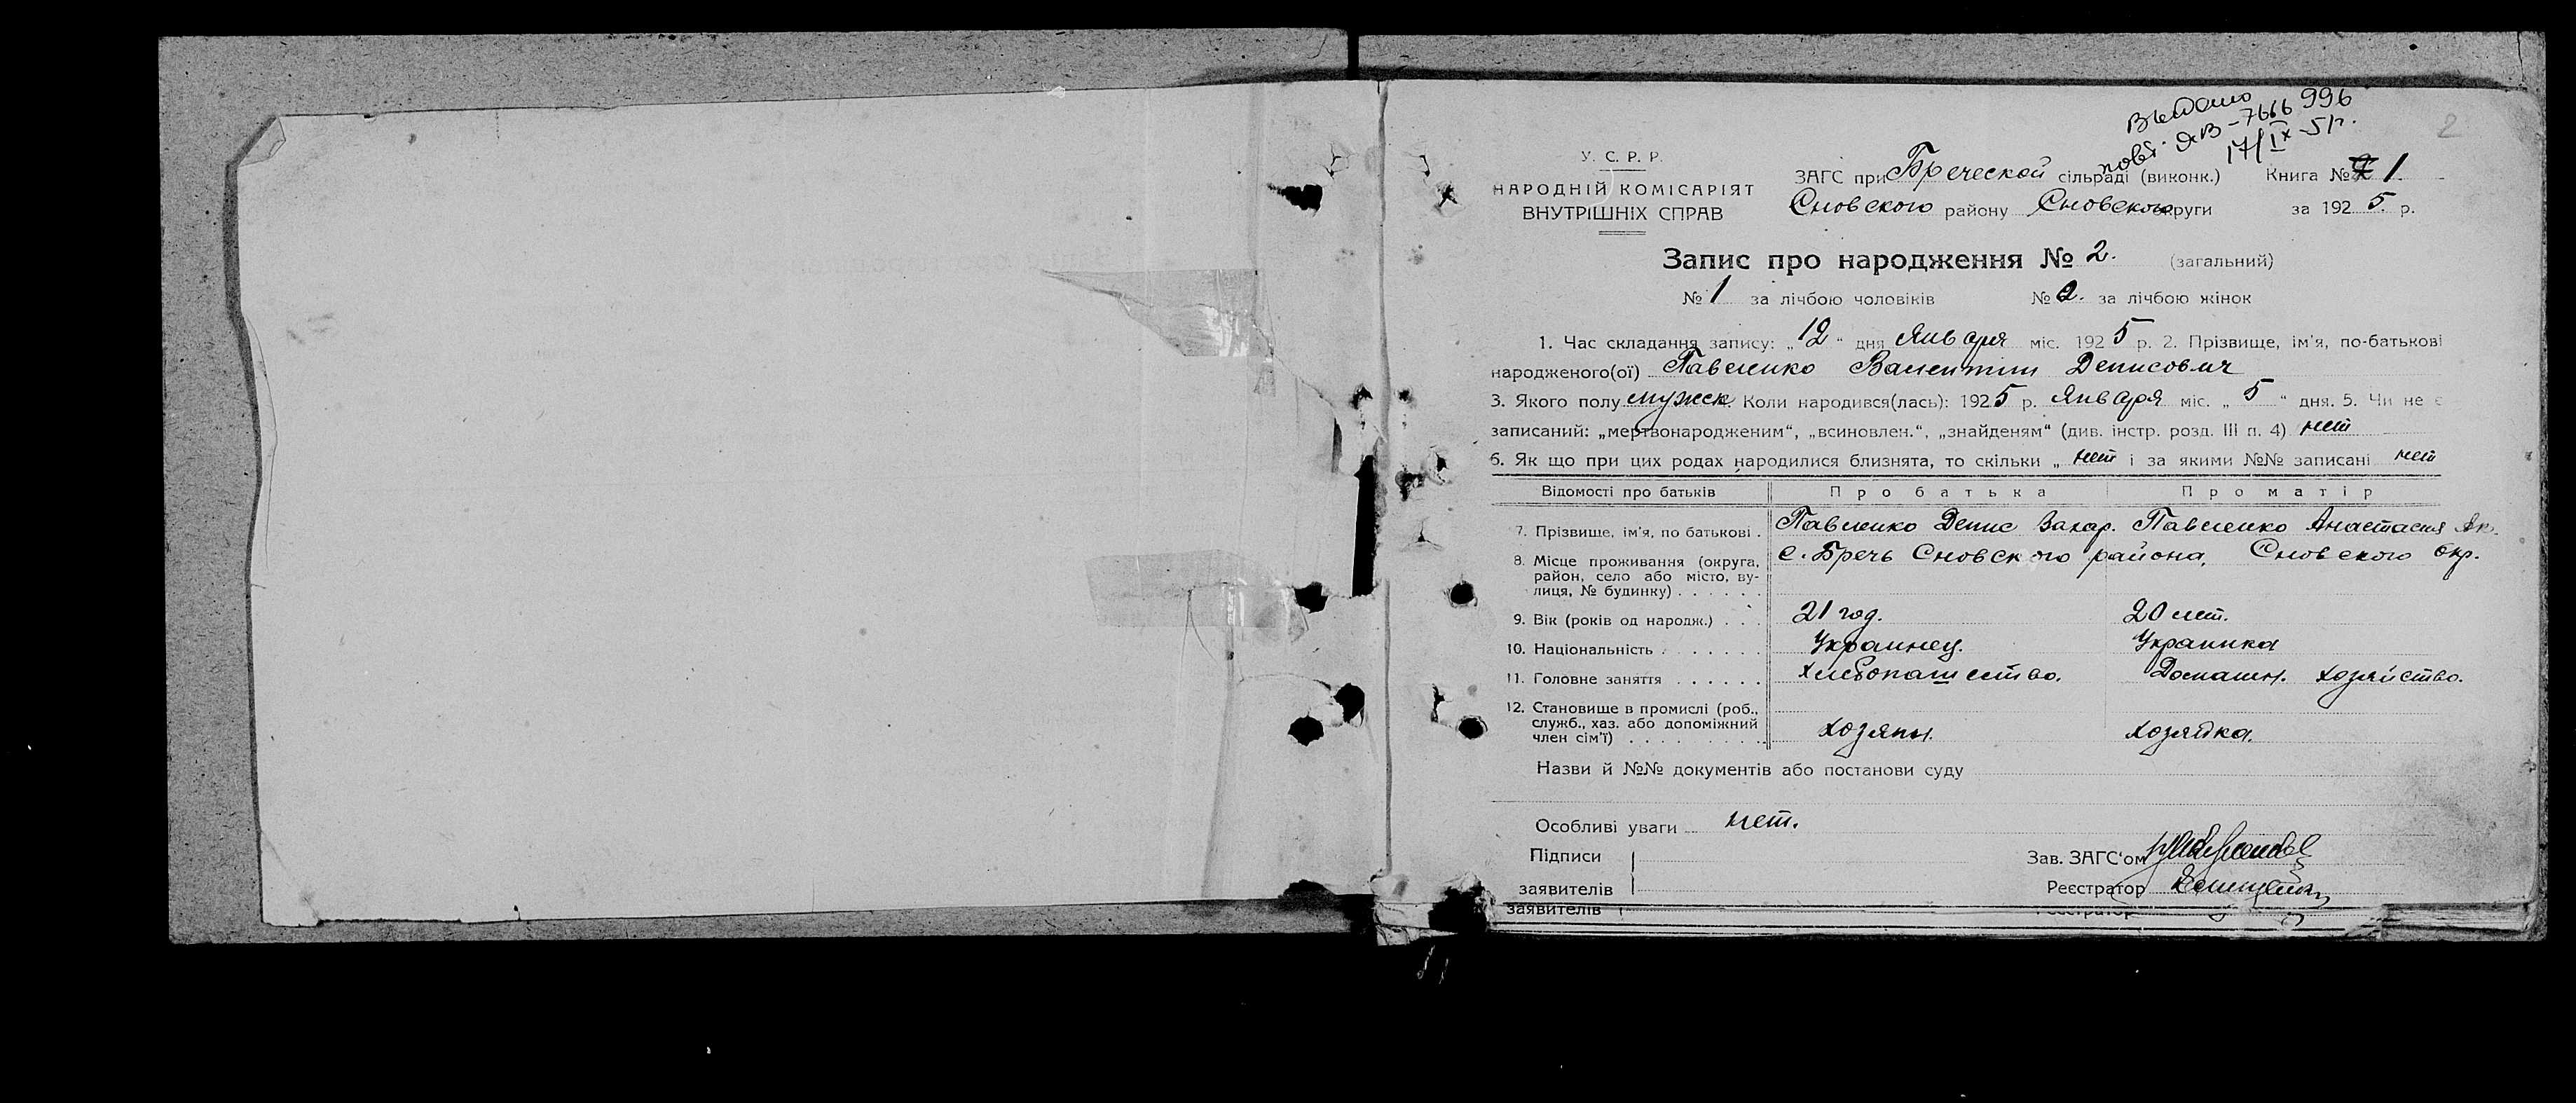 Выдано
повт. ЯВ-7666 996
17/IX-51г.
2
У. С. Р. Р.
НАРОДНІЙ КОМІСАРІЯТ
ВНУТРІШНІХ СПРАВ
ЗАГС при Бреческой сільраді (виконк.) Книга № 1
Сновского району Сновского округи за 1925 р.
Запис про народження № 2. (загальний)
№ 1 за лічбою чоловіків № 2. за лічбою жінок
1. Час складання запису: „12“ дня Января міс. 1925 р. 2. Прізвище, ім'я, по-батькові
народженого(ої) Павленко Валентин Денисович
3. Якого полу мужск. Коли народився(лась): 1925 р. Января міс. „5“ дня. 5. Чи не є
записаний: „мертвонародженим“, „всиновлен.“, „знайденям“ (див. інстр. розд. III п. 4) нет
6. Як що при цих родах народилися близнята, то скільки „ нет і за якими №№ записані нет
Відомості про батьків Про батька Про матір
7. Прізвище, ім'я, по батькові . Павленко Денис Захар. Павленко Анастасия Ак.
8. Місце проживання (округа, с. Бречь Сновского района, Сновского окр.
район, село або місто, ву-
лиця, № будинку) . . . . . .
9. Вік (років од народж.) . . . 21 год. 20 лет.
10. Національність . . . . . . . Украинец. Украинка
11. Головне заняття . . . . . . Хлебопашество. Домашн. хозяйство.
12. Становище в промислі (роб.,
служб., хаз. або допоміжний
член сім'ї) . . . . . . . . . хозяин. хозяйка.
Назви й №№ документів або постанови суду
Особливі уваги нет.
Підписи
Зав. ЗАГС'ом
заявителів
Реєстратор
заявителів
Реєстратор